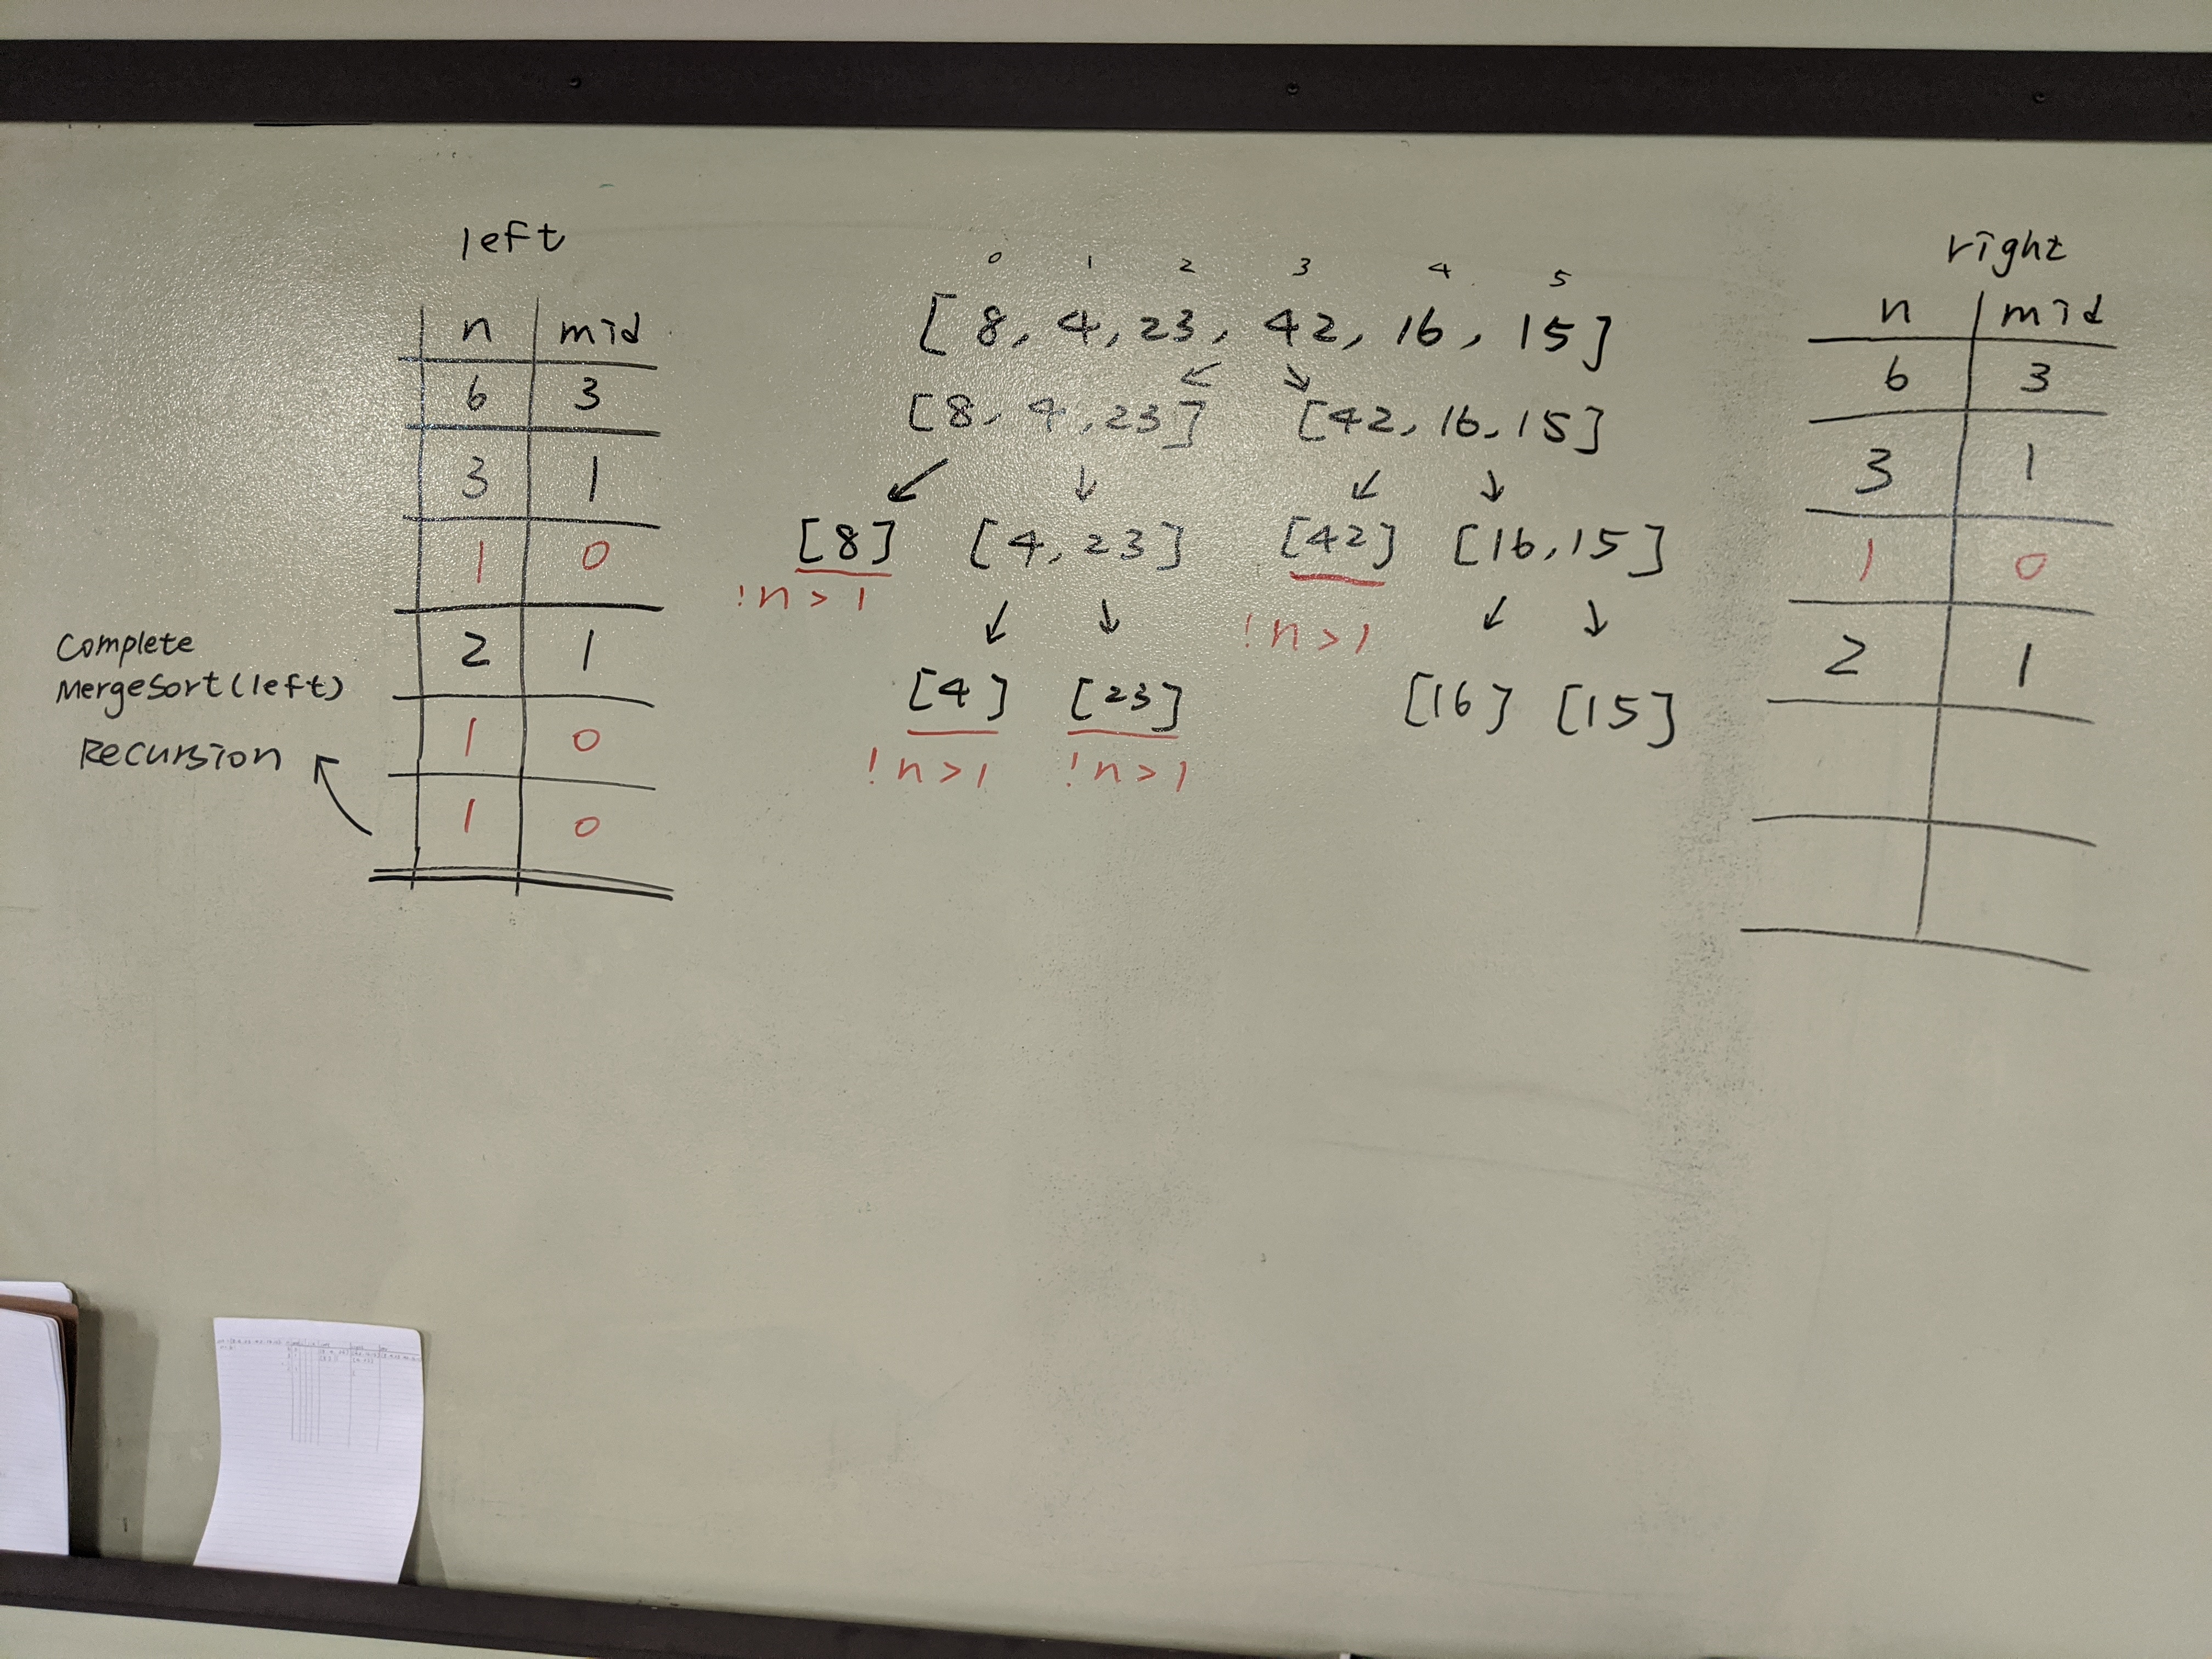 left
n mid
6 3
3 1
1 0
2 1
1 0
1 0
Complete
MergeSort(left)
Recursion
0 1 2 3 4 5
[8, 4, 23, 42, 16, 15]
[8, 4, 23] [42, 16, 15]
[8] [4, 23] [42] [16, 15]
!n > 1 !n > 1
[4] [23] [16] [15]
!n > 1 !n > 1
right
n mid
6 3
3 1
1 0
2 1